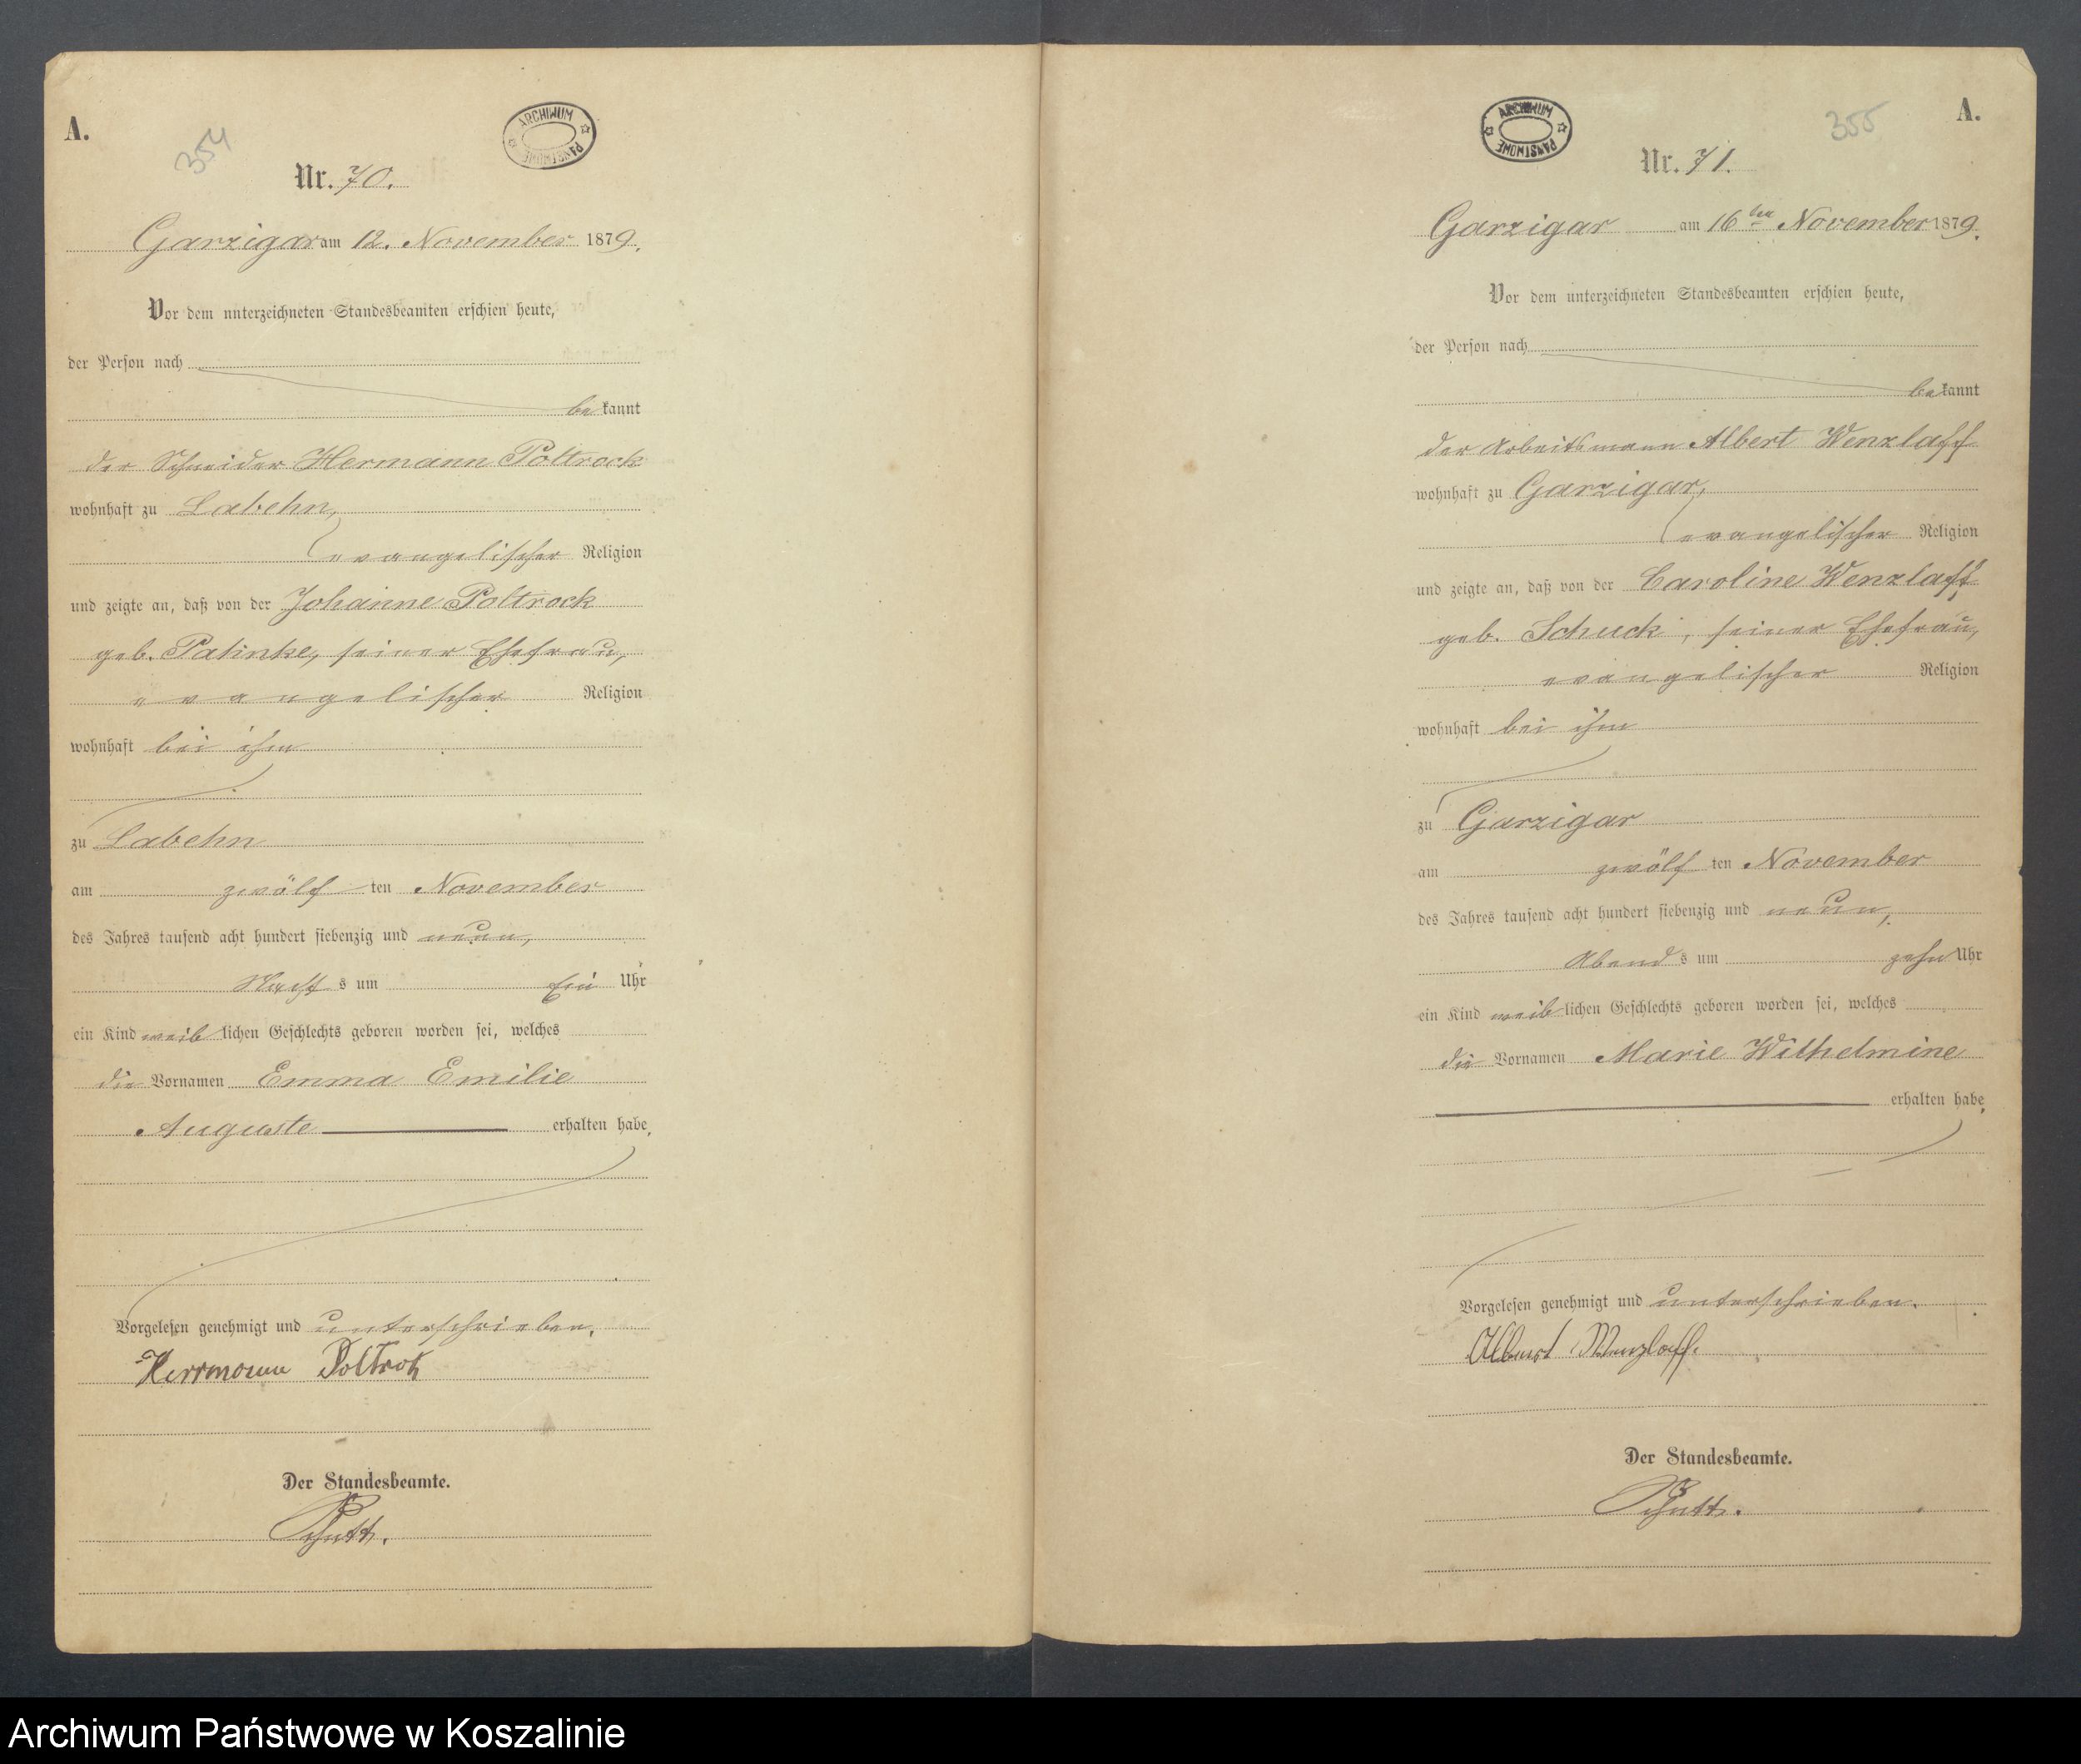 A.
354
ARCHIWUM PAŃSTWOWE
Nr. 70.
Garzigar am 12. November 1879.
Vor dem unterzeichneten Standesbeamten erschien heute,
der Person nach
bekannt
der Schneider Hermann Poltrock
wohnhaft zu Labehn,
evangelischer Religion
und zeigte an, daß von der Johanne Poltrock
geb. Patinke, seiner Ehefrau,
evangelischer Religion
wohnhaft bei ihm
zu Labehn
am zwölf ten November
des Jahres tausend acht hundert siebenzig und neun,
Nachts um Ein Uhr
ein Kind weiblichen Geschlechts geboren worden sei, welches
die Vornamen Emma Emilie
Auguste erhalten habe,
Vorgelesen genehmigt und unterschrieben.
Herrmann Poltrok
Der Standesbeamte.
A.
355
ARCHIWUM PAŃSTWOWE
Nr. 71.
Garzigar am 16ten November 1879.
Vor dem unterzeichneten Standesbeamten erschien heute,
der Person nach
bekannt
der Arbeitsmann Albert Wenzlaff
wohnhaft zu Garzigar,
evangelischer Religion
und zeigte an, daß von der Caroline Wenzlaff,
geb. Schuck, seiner Ehefrau,
evangelischer Religion
wohnhaft bei ihm
zu Garzigar
am zwölf ten November
des Jahres tausend acht hundert siebenzig und neun,
Abends um zehn Uhr
ein Kind weiblichen Geschlechts geboren worden sei, welches
die Vornamen Marie Wilhelmine
erhalten habe,
Vorgelesen genehmigt und unterschrieben.
Albert Wenzlaff.
Der Standesbeamte.
Archiwum Państwowe w Koszalinie